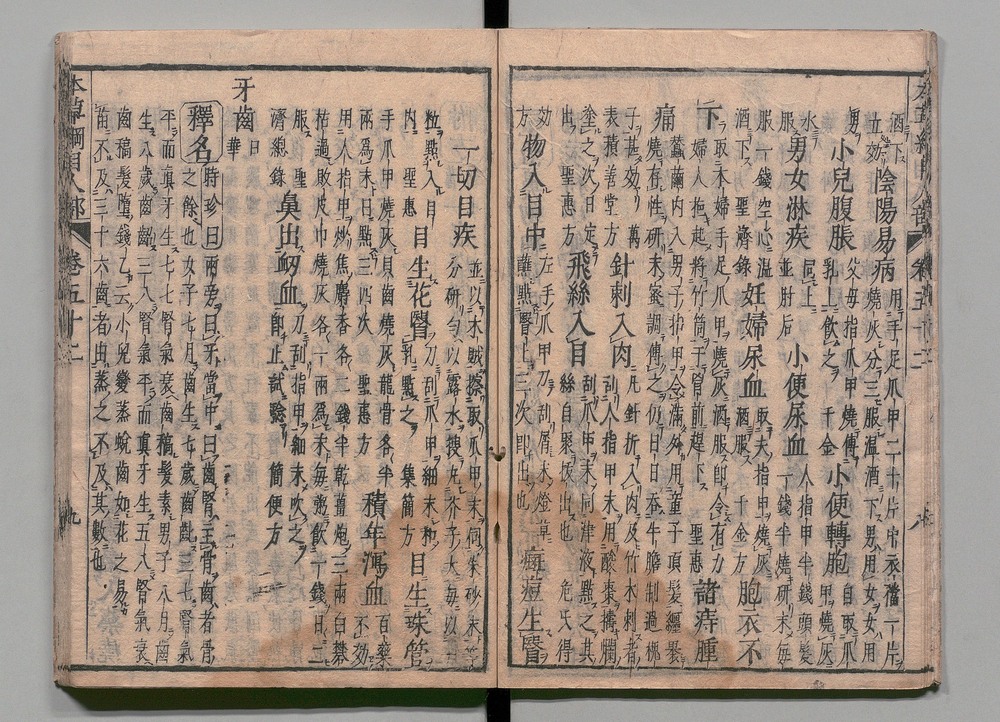 酒下
立效陰陽易病用手足爪甲二十片中衣襠一片燒灰分三服温酒下男用女女用
男小兒腹脹父母指爪甲燒傅乳上飲之千金小便轉胞自取爪甲燒灰
水服男女淋疾同上並肘后小便尿血人指甲半錢頭髮
一錢半燒研末每
服一錢空心温酒下聖濟錄妊婦尿血取夫指甲燒灰酒服千金方胞衣不
下取本婦手足爪甲燒灰酒服即令有力婦人抱起將竹筒于胷前趕下聖惠諸痔腫
痛蠶繭內入男子指甲令滿外用童子頂髮纏裹燒存性研末蜜調傅之仍日日吞牛膽制過槐
子甚效萬表積善堂方針刺入肉凡針折入肉及竹木刺者刮人指甲末用酸棗搗爛
塗之次日定出聖惠方飛絲入目刮爪甲末同津液點之其絲自聚拔出也危氏得
效方物入目中左手爪甲刀刮屑末燈草蘸點瞖上三次即出也痘痘生瞖
一切目疾並以木賊擦取爪甲末同朱砂末等分研勻以露水搜丸芥子大每以一
粒點入目內聖惠目生花瞖刀刮爪甲細末和乳點之集簡方目生珠管
手爪甲燒灰貝齒燒灰龍骨各半兩為末日點三四次聖惠方積年瀉血百藥不效
用人指甲炒焦麝香各二錢半乾薑炮三兩白礬
枯過敗皮巾燒灰各一兩為末每粥飲一錢日二
服聖濟總錄鼻出衂血刀刮指甲細末吹之即止試驗簡便方
牙齒日華
釋名時珍曰兩旁曰牙當中曰齒腎主骨齒者骨
之餘也女子七月齒生七歲齒齔三七腎氣
平而真牙生七七腎氣衰齒稿髮素男子八月齒
生八歲齒齔三八腎氣平而真牙生五八腎氣衰
齒稿髮墮錢乙云小兒變蒸蛻齒如花之易
苗不及三十六齒者由蒸之不及其數也
卷五十二
九